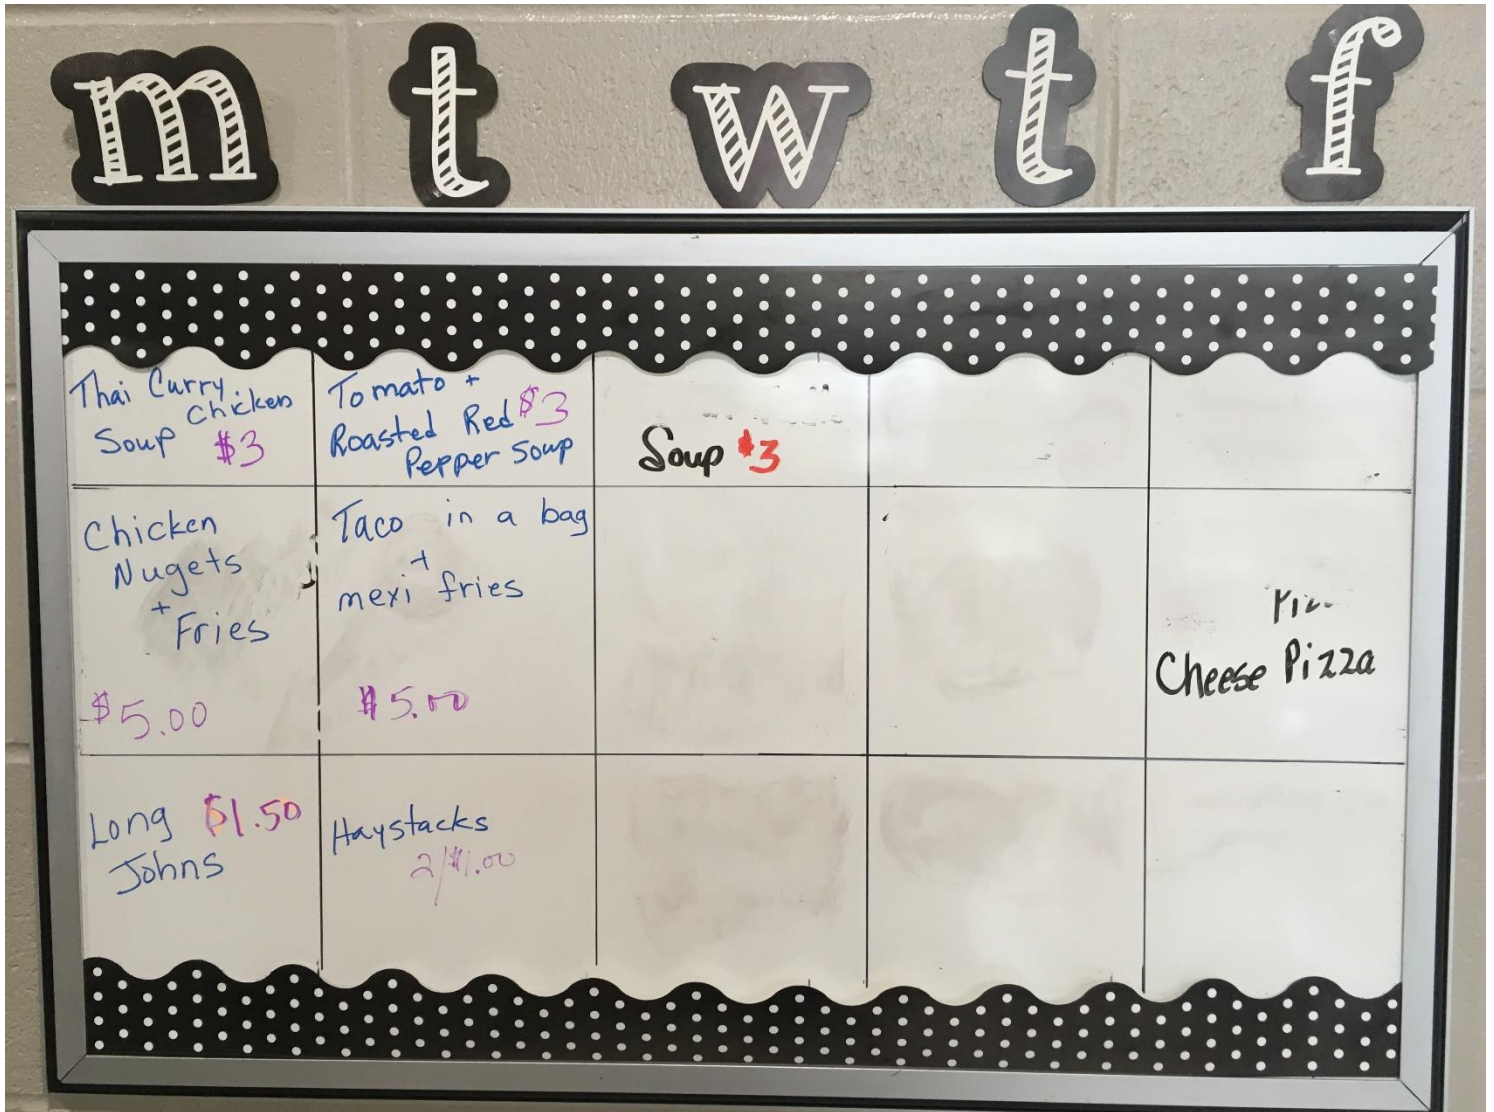 m t w t f
Thai Curry
Chicken
Soup $3
Tomato +
Roasted Red $3
Pepper Soup
Soup $3
Chicken
Nugets
+
Fries
$5.00
Taco in a bag
+
mexi fries
$5.00
Cheese Pizza
Long $1.50
Johns
Haystacks
2/$1.00